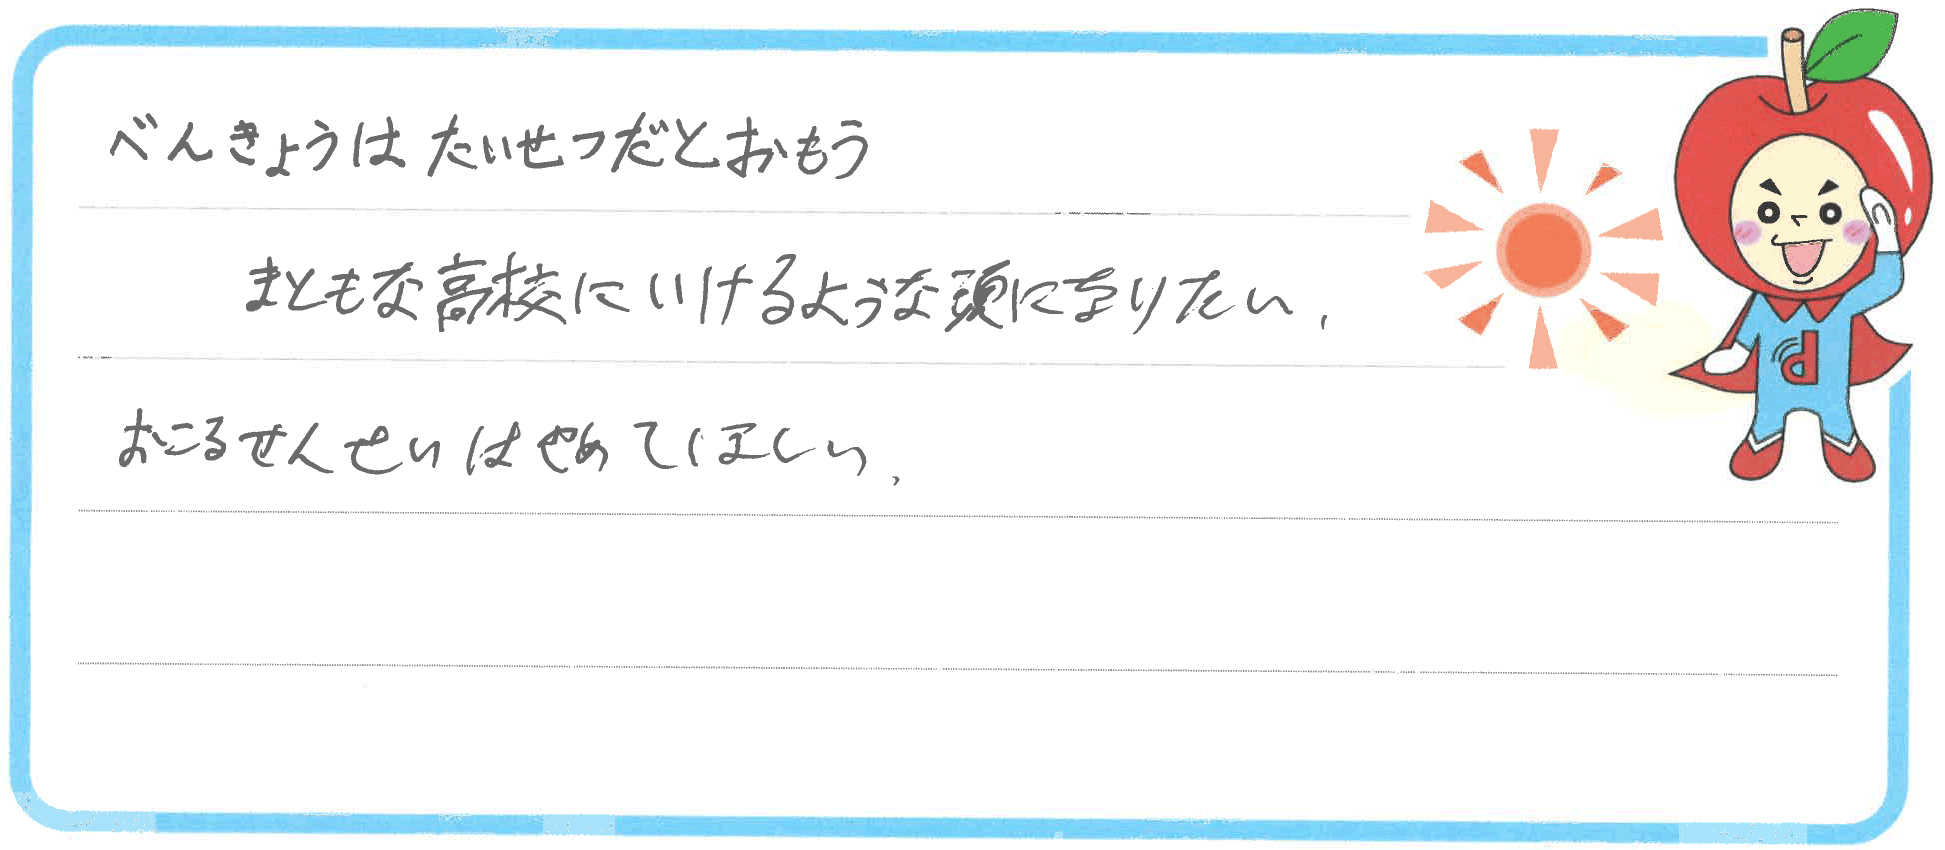 べんきょうは たいせつだとおもう
まともな高校にいけるような頭になりたい、
おこるせんせいはやめてほしい、